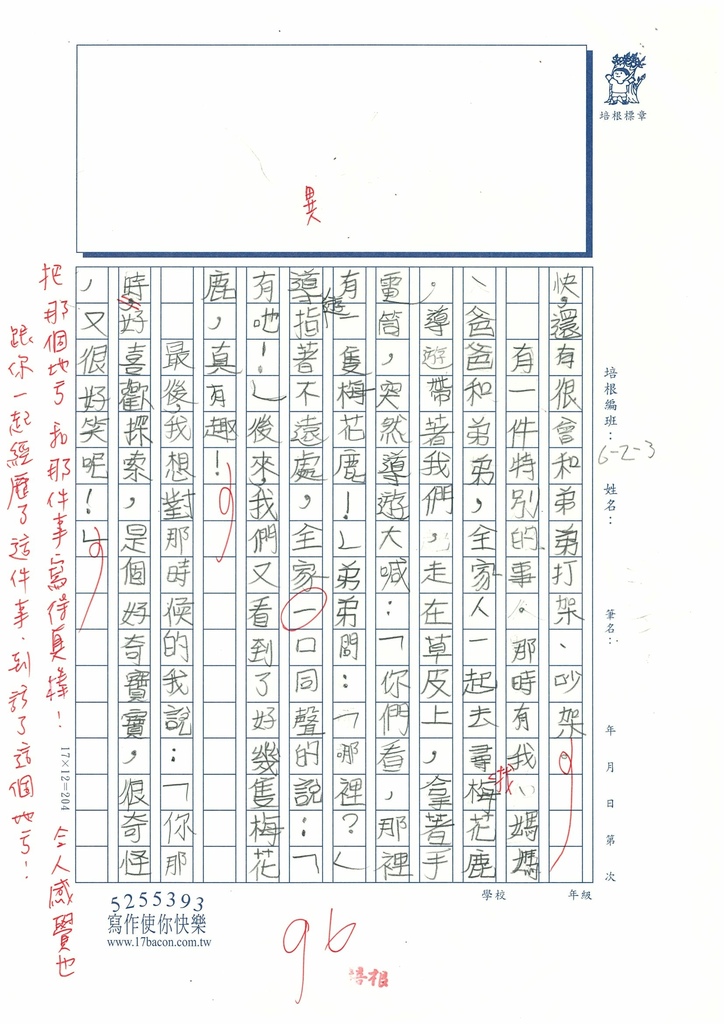 培根標章
異
培根編班：
6-2-3
姓名：
筆名：
年 月 日 第 次
快，還有很會和弟弟打架、吵架。
有一件特別的事。那時有我、媽媽
、爸爸和弟弟，全家人一起去尋梅花鹿
找
，導遊帶著我們，走在草皮上，拿著手
電筒，突然導遊大喊：「你們看，那裡
有一隻梅花鹿！」弟弟問：「哪裡？」
導指著不遠處，全家一口同聲的說：「
遊
有吔！」後來，我們又看到了好幾隻梅花
鹿，真有趣！
最後，我想對那時候的我說：「你那
時，好喜歡探索，是個好奇寶寶，很奇怪
，又很好笑呢！」
17×12=204
把那個地方和那件事寫得真棒！令人感覺也
跟你一起經歷了這件事，到訪了這個地方！
學校
年級
5255393
寫作使你快樂
www.17bacon.com.tw
96
培根